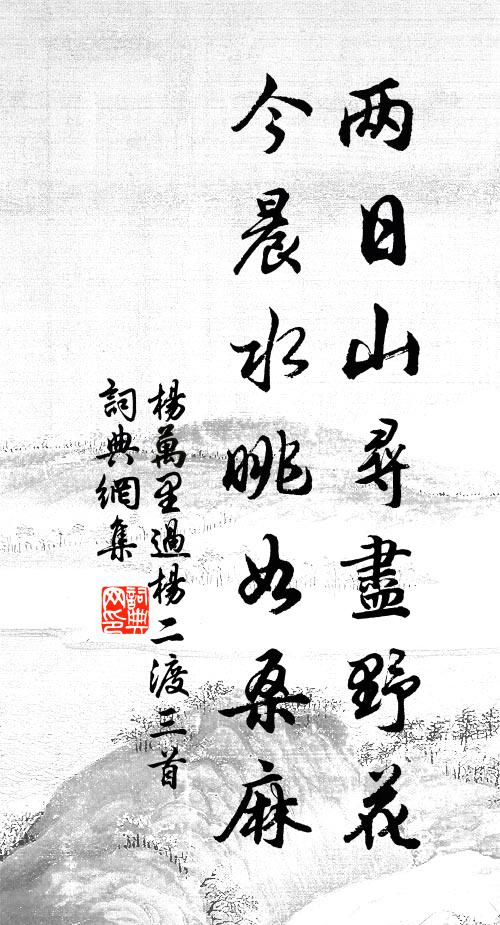 两日山尋盡野花
今晨水眺如桑麻
楊萬里過楊二渡三首
詞典網集
詞典
网印